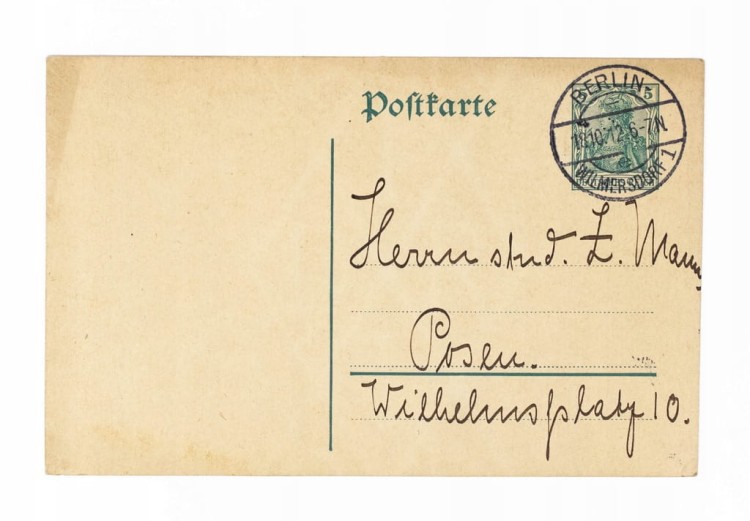 Postkarte
BERLIN
5
18.10.12.6-7N.
WILMERSDORF 1
Herrn stud. Z. Mann,
Posen.
Wilhelmsplatz 10.